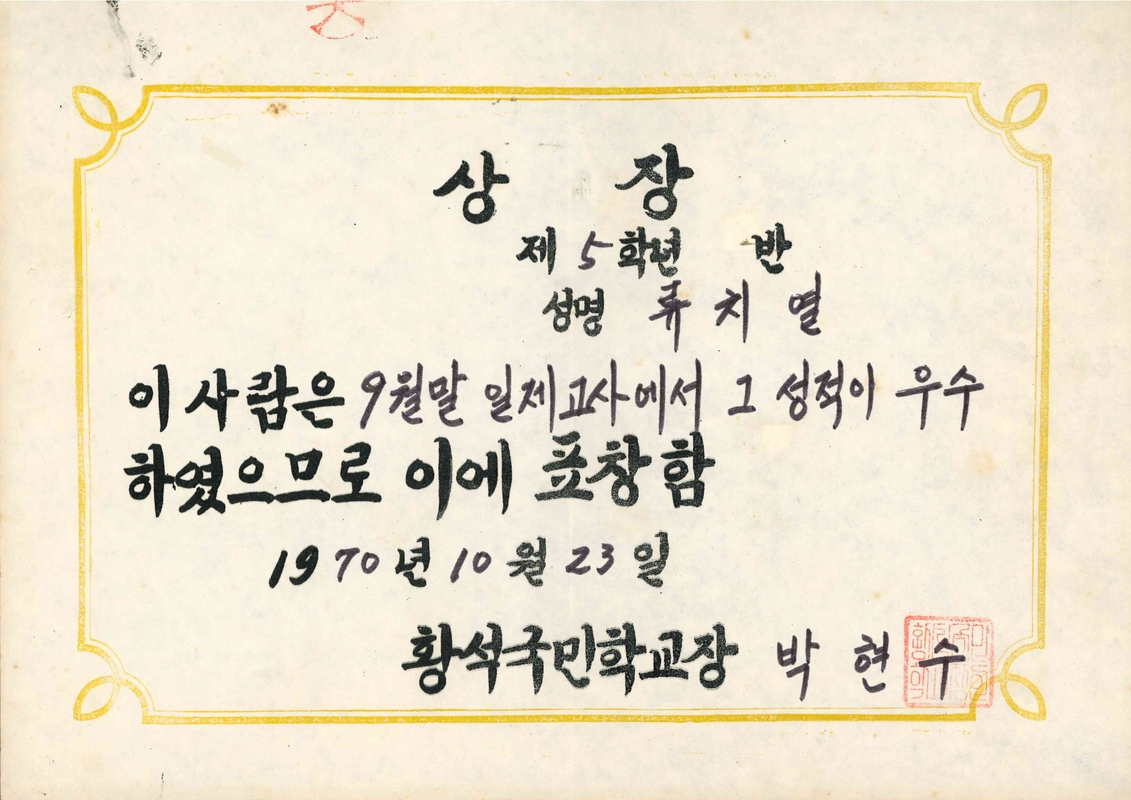 상 장
제 5 학년 반
성명 류 치 열
이 사람은 9월말 일제고사에서 그 성적이 우수
하였으므로 이에 표창함
1970년 10월 23일
황석국민학교장 박 현 수